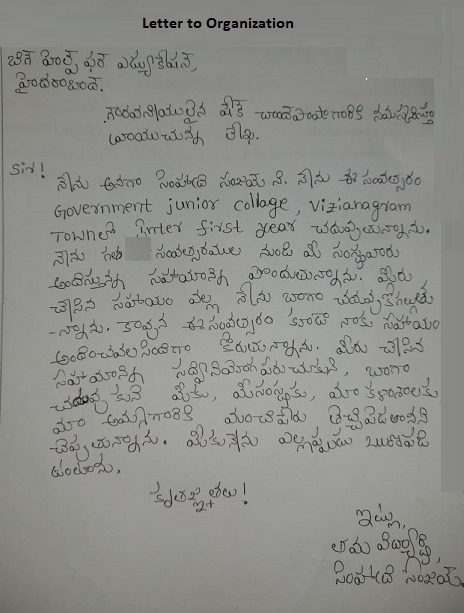 Letter to Organization
బిగ్ హెల్ప్ ఫర్ ఎడ్యుకేషన్,
హైదరాబాద్.
గౌరవనీయులైన షేక్ చాంద్‌పాషాగారికి నమస్కరిస్తూ
వ్రాయుచున్న లేఖ.
Sir!
నేను అనగా సింహాద్రి సంజయ్ ని. నేను ఈ సంవత్సరం
Government junior collage, Vizianagram
Townలో inter first year చదువుతున్నాను.
నేను గత సంవత్సరముల నుండి మీ సంస్థవారు
అందిస్తున్న సహాయాన్ని పొందుతున్నాను. మీరు
చేసిన సహాయం వల్ల నేను బాగా చదువుకోగల్గుతు
-న్నాను. కావున ఈ సంవత్సరం కూడా నాకు సహాయం
అందించవలసిందిగా కోరుతున్నాను. మీరు చేసిన
సహాయాన్ని సద్వినియోగపరుచుకుని, బాగా
చదువుకుని మీకు, మీసంస్థకు, మా కళాశాలకు
మా అమ్మగారికి మంచిపేరు తెచ్చిపెడతానని
చెప్పుతున్నాను. మీకునేను ఎల్లప్పుడు ఋణపడి
ఉంటాను.
కృతజ్ఞతలు!
ఇట్లు,
తమ విద్యార్థి,
సింహాద్రి సంజయ్.